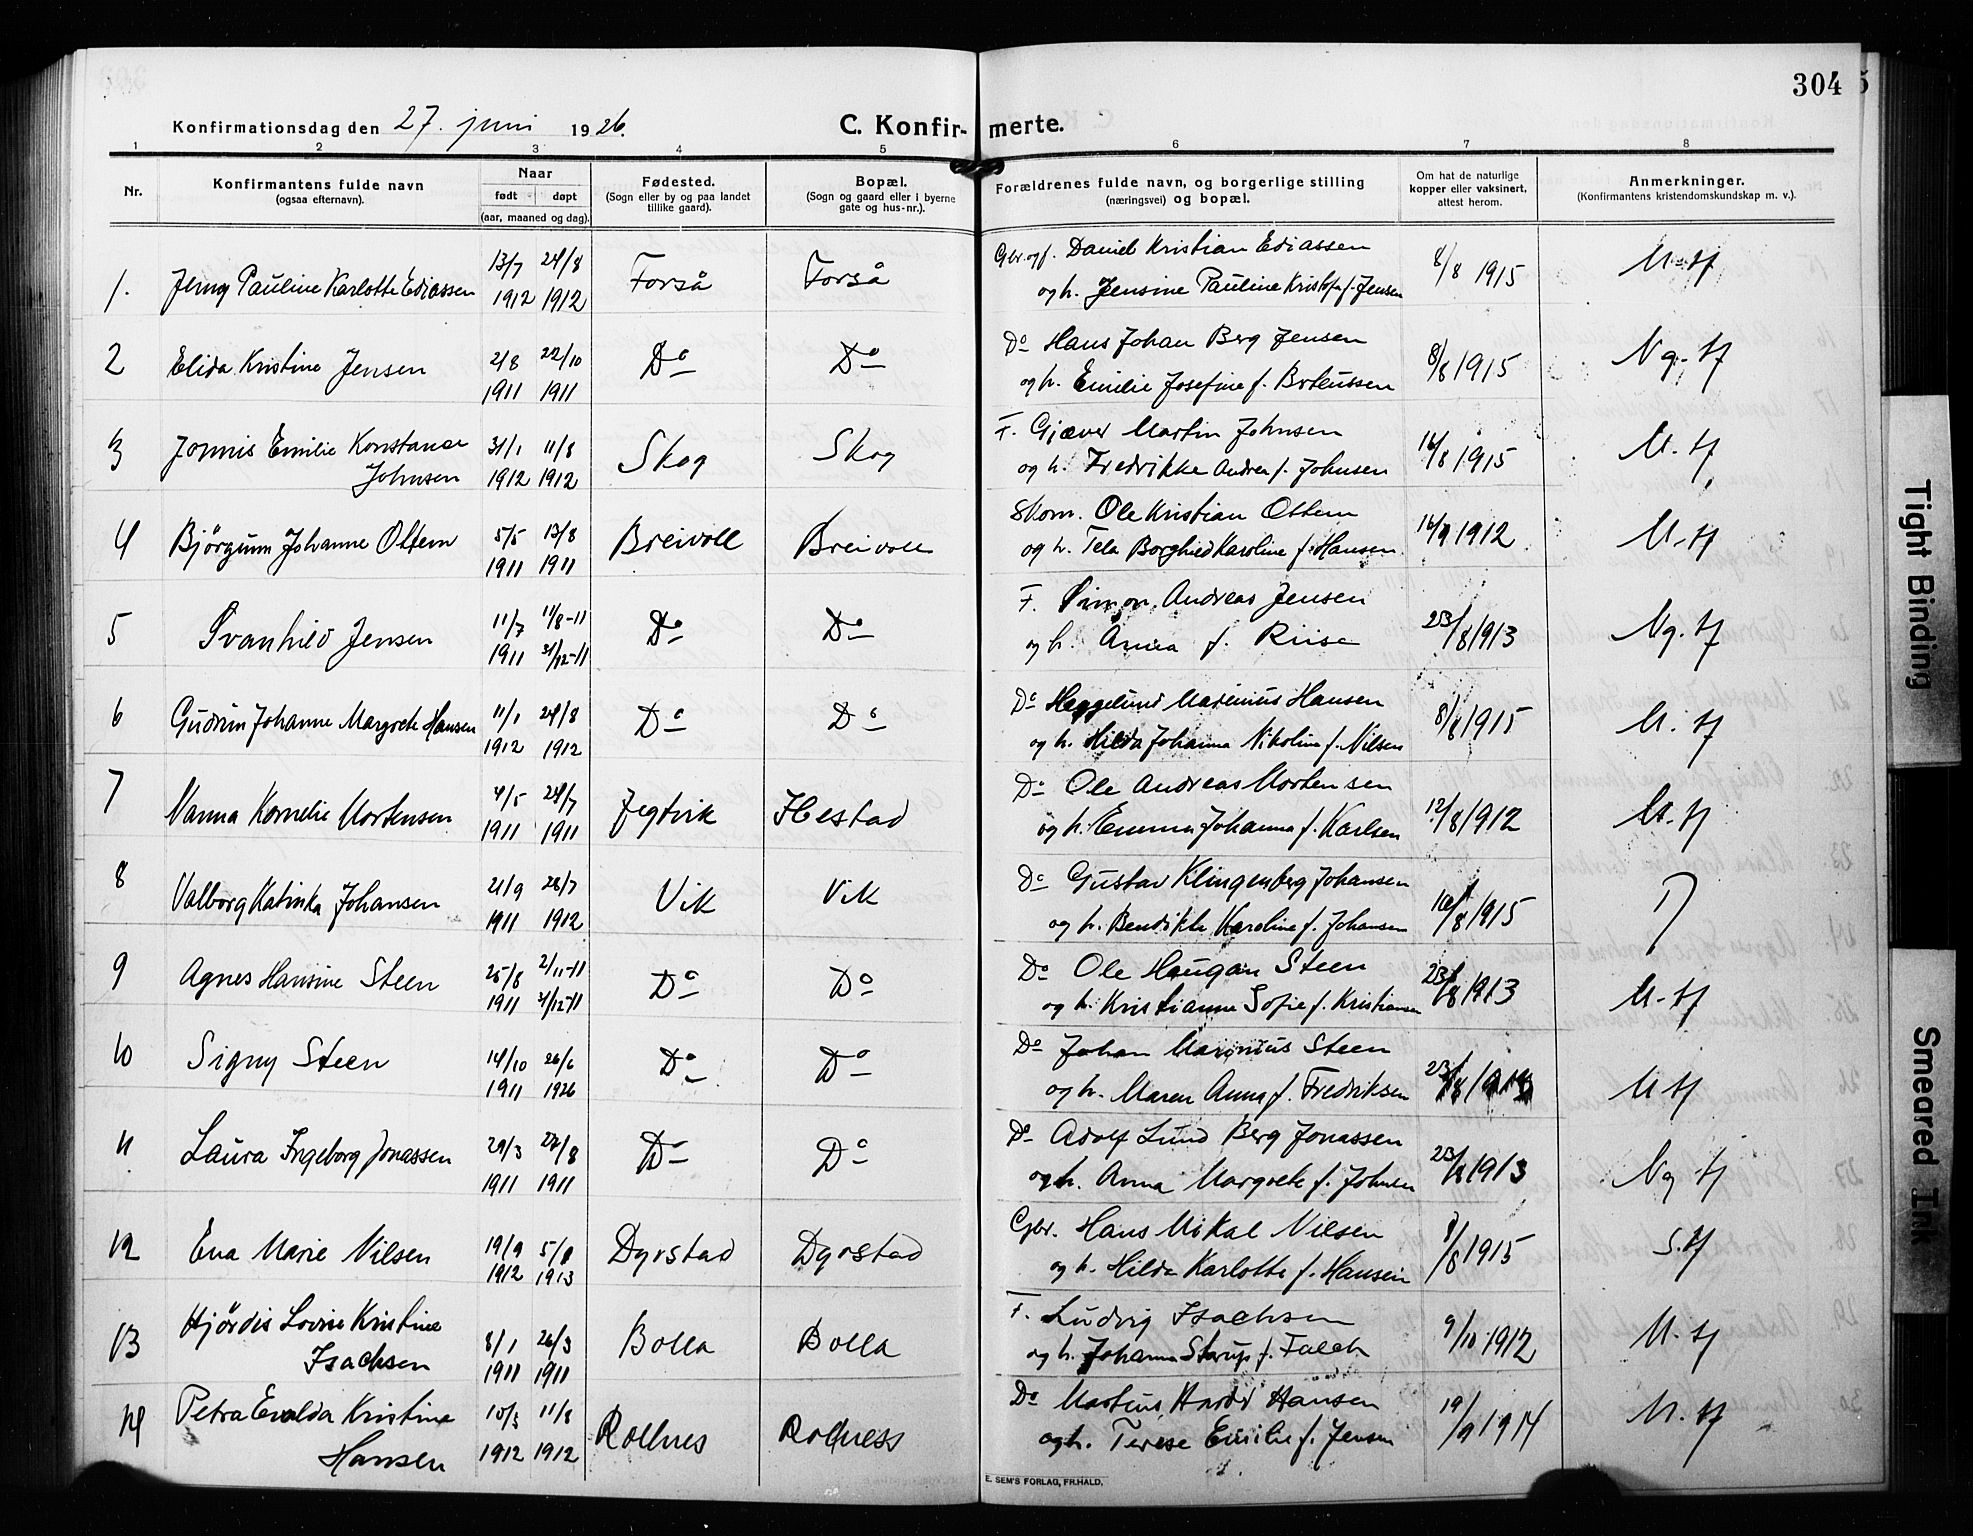 304
Konfirmationsdag den 27. juni 1926.
C. Konfirmerte.
1 2 3 4 5 6 7 8
Nr.
Konfirmantens fulde navn
(ogsaa efternavn).
Naar
født døpt
(aar, maaned og dag).
Fødested.
(Sogn eller by og paa landet
tillike gaard).
Bopæl.
(Sogn og gaard eller i byerne
gate og hus-nr.).
Forældrenes fulde navn, og borgerlige stilling
(næringsvei) og bopæl.
Om hat de naturlige
kopper eller vaksinert,
attest herom.
Anmerkninger.
(Konfirmantens kristendomskundskap m. v.).
1. Jenny Pauline Karlotte Ediassen 13/7 1912 24/8 1912 Forså Forså
Gbr. og f. Daniel Kristian Ediassen
og h. Jensine Pauline Kristofa f. Jensen 8/8 1915 M-tf
2 Elida Kristine Jensen 2/8 1911 22/10 1911 Do Do
Do Hans Johan Berg Jensen
og h. Emilie Josefine f. 8/8 1915 Ng.-tf
3 Jonnis Emilie Konstanse
Johnsen 31/1 1912 11/8 1912 Skog Skog
F. Gjæver Martin Johnsen
og h. Fredrikke Andrea f. Johnsen 16/8 1915 M.-tf
4 Bjørgunn Johanne Ottem 5/5 1911 13/8 1911 Breivoll Breivoll
Skom. Ole Kristian Ottem
og h. Tela Borghild Karoline f. Hansen 16/9 1912 M.-tf
5 Svanhild Jensen 11/7 1911 11/8-11 31/12-11 Do Do
F. Simon Andreas Jensen
og h. Anna f. Riise 23/8 1913 Ng. tf
6 Gudrun Johanne Margrete Hansen 11/1 1912 24/8 1912 Do Do
Do Heggelund Marenius Hansen
og h. Hilda Johanna Nikoline f. Nilsen 8/8 1915 M. tf
7 Nanna Kornelie Mortensen 4/5 1911 24/7 1911 Jegtvik Hestad
Do Ole Andreas Mortensen
og h. Emma Johanna f. Karlsen 12/8 1912 M.-tf
8 Valborg Katinka Johansen 21/9 1911 28/7 1912 Vik Vik
Do Gustav Klingenberg Johansen
og h. Bendikte Karoline f. Johansen 16/8 1915
9 Agnes Hansine Steen 25/8 1911 2/11-11 31/12-11 Do Do
Do Ole Haugan Steen
og h. Kristianna Sofie f. Kristiansen 23/8 1913 M-tf
10 Signy Steen 14/10 1911 26/6 1926 Do Do
Do Johan Marinius Steen
og h. Maren Anna f. Fredriksen 23/8 1913 M tf
11 Laura Ingeborg Jonassen 29/3 1911 27/8 1911 Do Do
Do Adolf Lund Berg Jonassen
og h. Anna Margrete f. Johnsen 23/8 1913 Ng-tf
12 Ena Marie Nilsen 19/9 1912 5/8 1913 Dyrstad Dyrstad
Gbr. Hans Mikal Nilsen
og h. Hilda Karlotte f. Hansen 8/8 1915 S.tf
13 Hjørdis Lovise Kristine
Isachsen 8/1 1911 26/3 1911 Bolla Bolla
F. Ludvig Isachsen
og h. Johanna Sterup f. Falch 9/10 1912 M.-tf
14 Petra Evalda Kristine
Hansen 10/3 1912 11/8 1912 Rollnes Rollness
Do Martius Hardd Hansen
og h. Terese Emilie f. Jensen 19/9 1914 M. tf
E. SEM'S FORLAG, FR.HALD.
Tight Binding
Smeared Ink